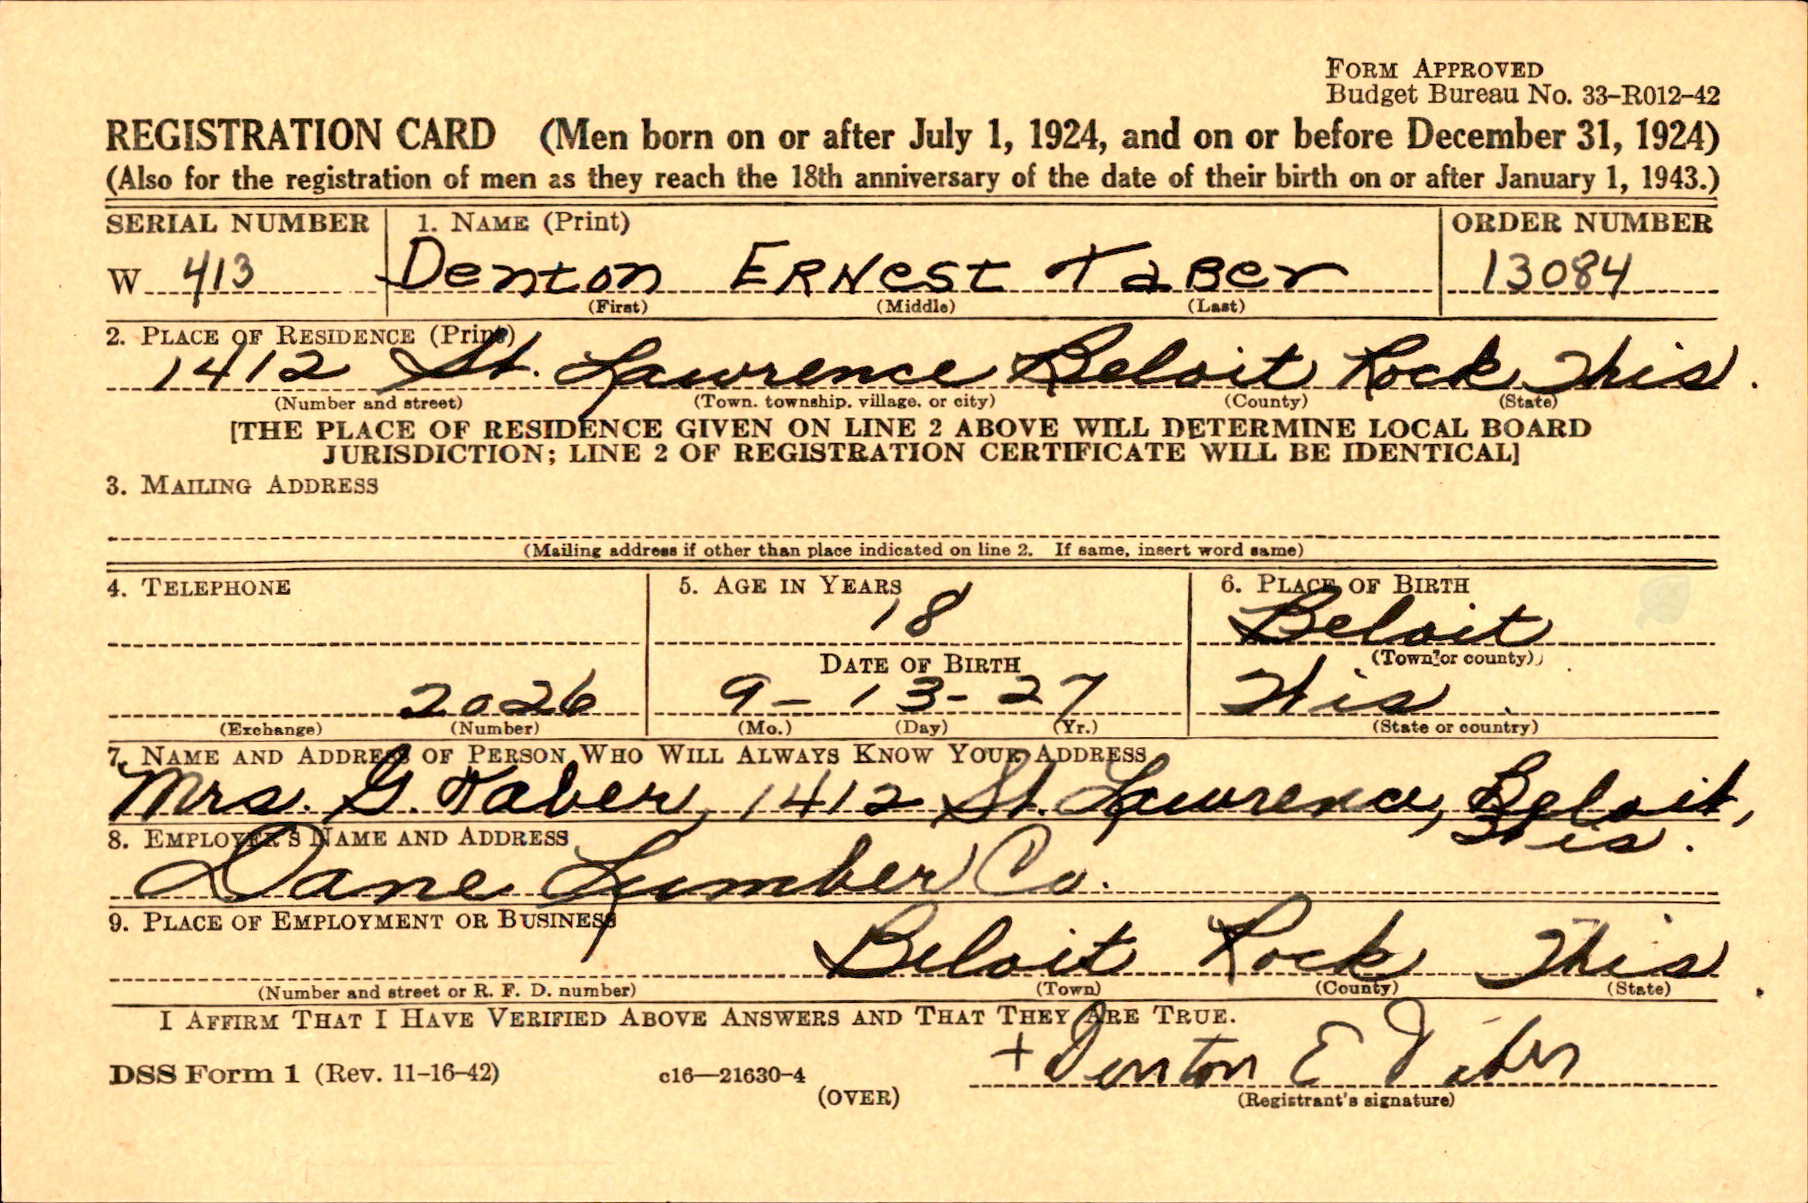 FORM APPROVED
Budget Bureau No. 33-R012-42
REGISTRATION CARD (Men born on or after July 1, 1924, and on or before December 31, 1924)
(Also for the registration of men as they reach the 18th anniversary of the date of their birth on or after January 1, 1943.)
SERIAL NUMBER 1. NAME (Print) ORDER NUMBER
W 413 Denton ERNeST TaBer 13084
(First) (Middle) (Last)
2. PLACE OF RESIDENCE (Print)
1412 St. Lawrence Beloit Rock Wis.
(Number and street) (Town, township, village, or city) (County) (State)
[THE PLACE OF RESIDENCE GIVEN ON LINE 2 ABOVE WILL DETERMINE LOCAL BOARD
JURISDICTION; LINE 2 OF REGISTRATION CERTIFICATE WILL BE IDENTICAL]
3. MAILING ADDRESS
(Mailing address if other than place indicated on line 2. If same, insert word same)
4. TELEPHONE 5. AGE IN YEARS 6. PLACE OF BIRTH
18 Beloit
DATE OF BIRTH (Town or county)
2026 9-13-27 Wis
(Exchange) (Number) (Mo.) (Day) (Yr.) (State or country)
7. NAME AND ADDRESS OF PERSON WHO WILL ALWAYS KNOW YOUR ADDRESS
Mrs. G. Taber, 1412 St. Lawrence, Beloit,
Wis.
8. EMPLOYER'S NAME AND ADDRESS
Dane Lumber Co.
9. PLACE OF EMPLOYMENT OR BUSINESS
Beloit Rock Wis
(Number and street or R. F. D. number) (Town) (County) (State)
I AFFIRM THAT I HAVE VERIFIED ABOVE ANSWERS AND THAT THEY ARE TRUE.
+ Denton E Taber
DSS Form 1 (Rev. 11-16-42) c16—21630-4
(OVER) (Registrant's signature)